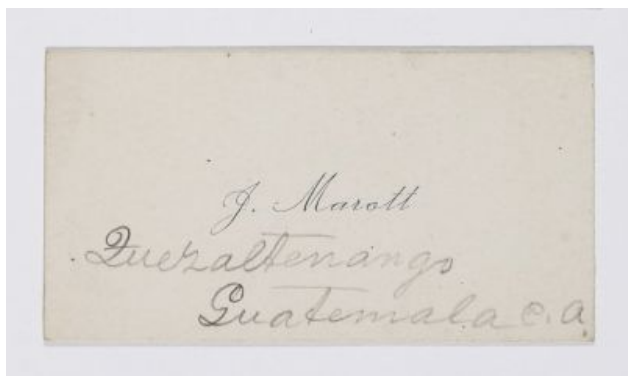 J. Marott
Quezaltenango
Guatemala C.A.